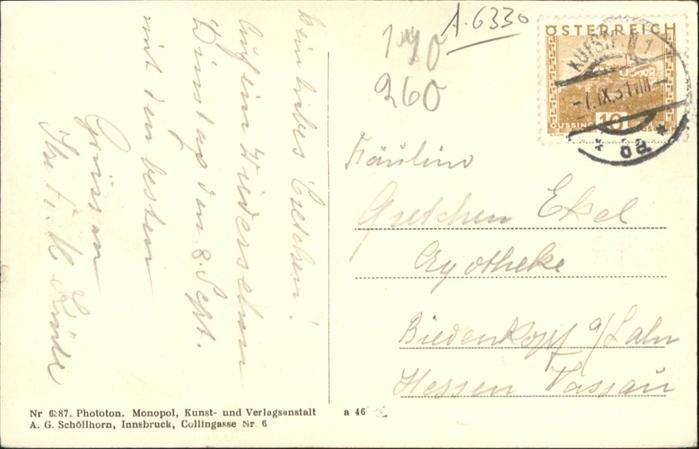 Mein liebes Gretchen!
Auf ein Wiedersehen
Dienstag den 8. Sept.
mit den besten
Grüssen
A. 6330
260
ÖSTERREICH
KUFSTEIN 1
-7.IX.31
GÜSSING
10
* 6a *
Fräulein
Gretchen
Apotheke
Biedenkopf a/Lahn
Hessen Nassau
Nr 6287. Phototon. Monopol, Kunst- und Verlagsanstalt
A. G. Schöllhorn, Innsbruck, Collingasse Nr. 6
a 46